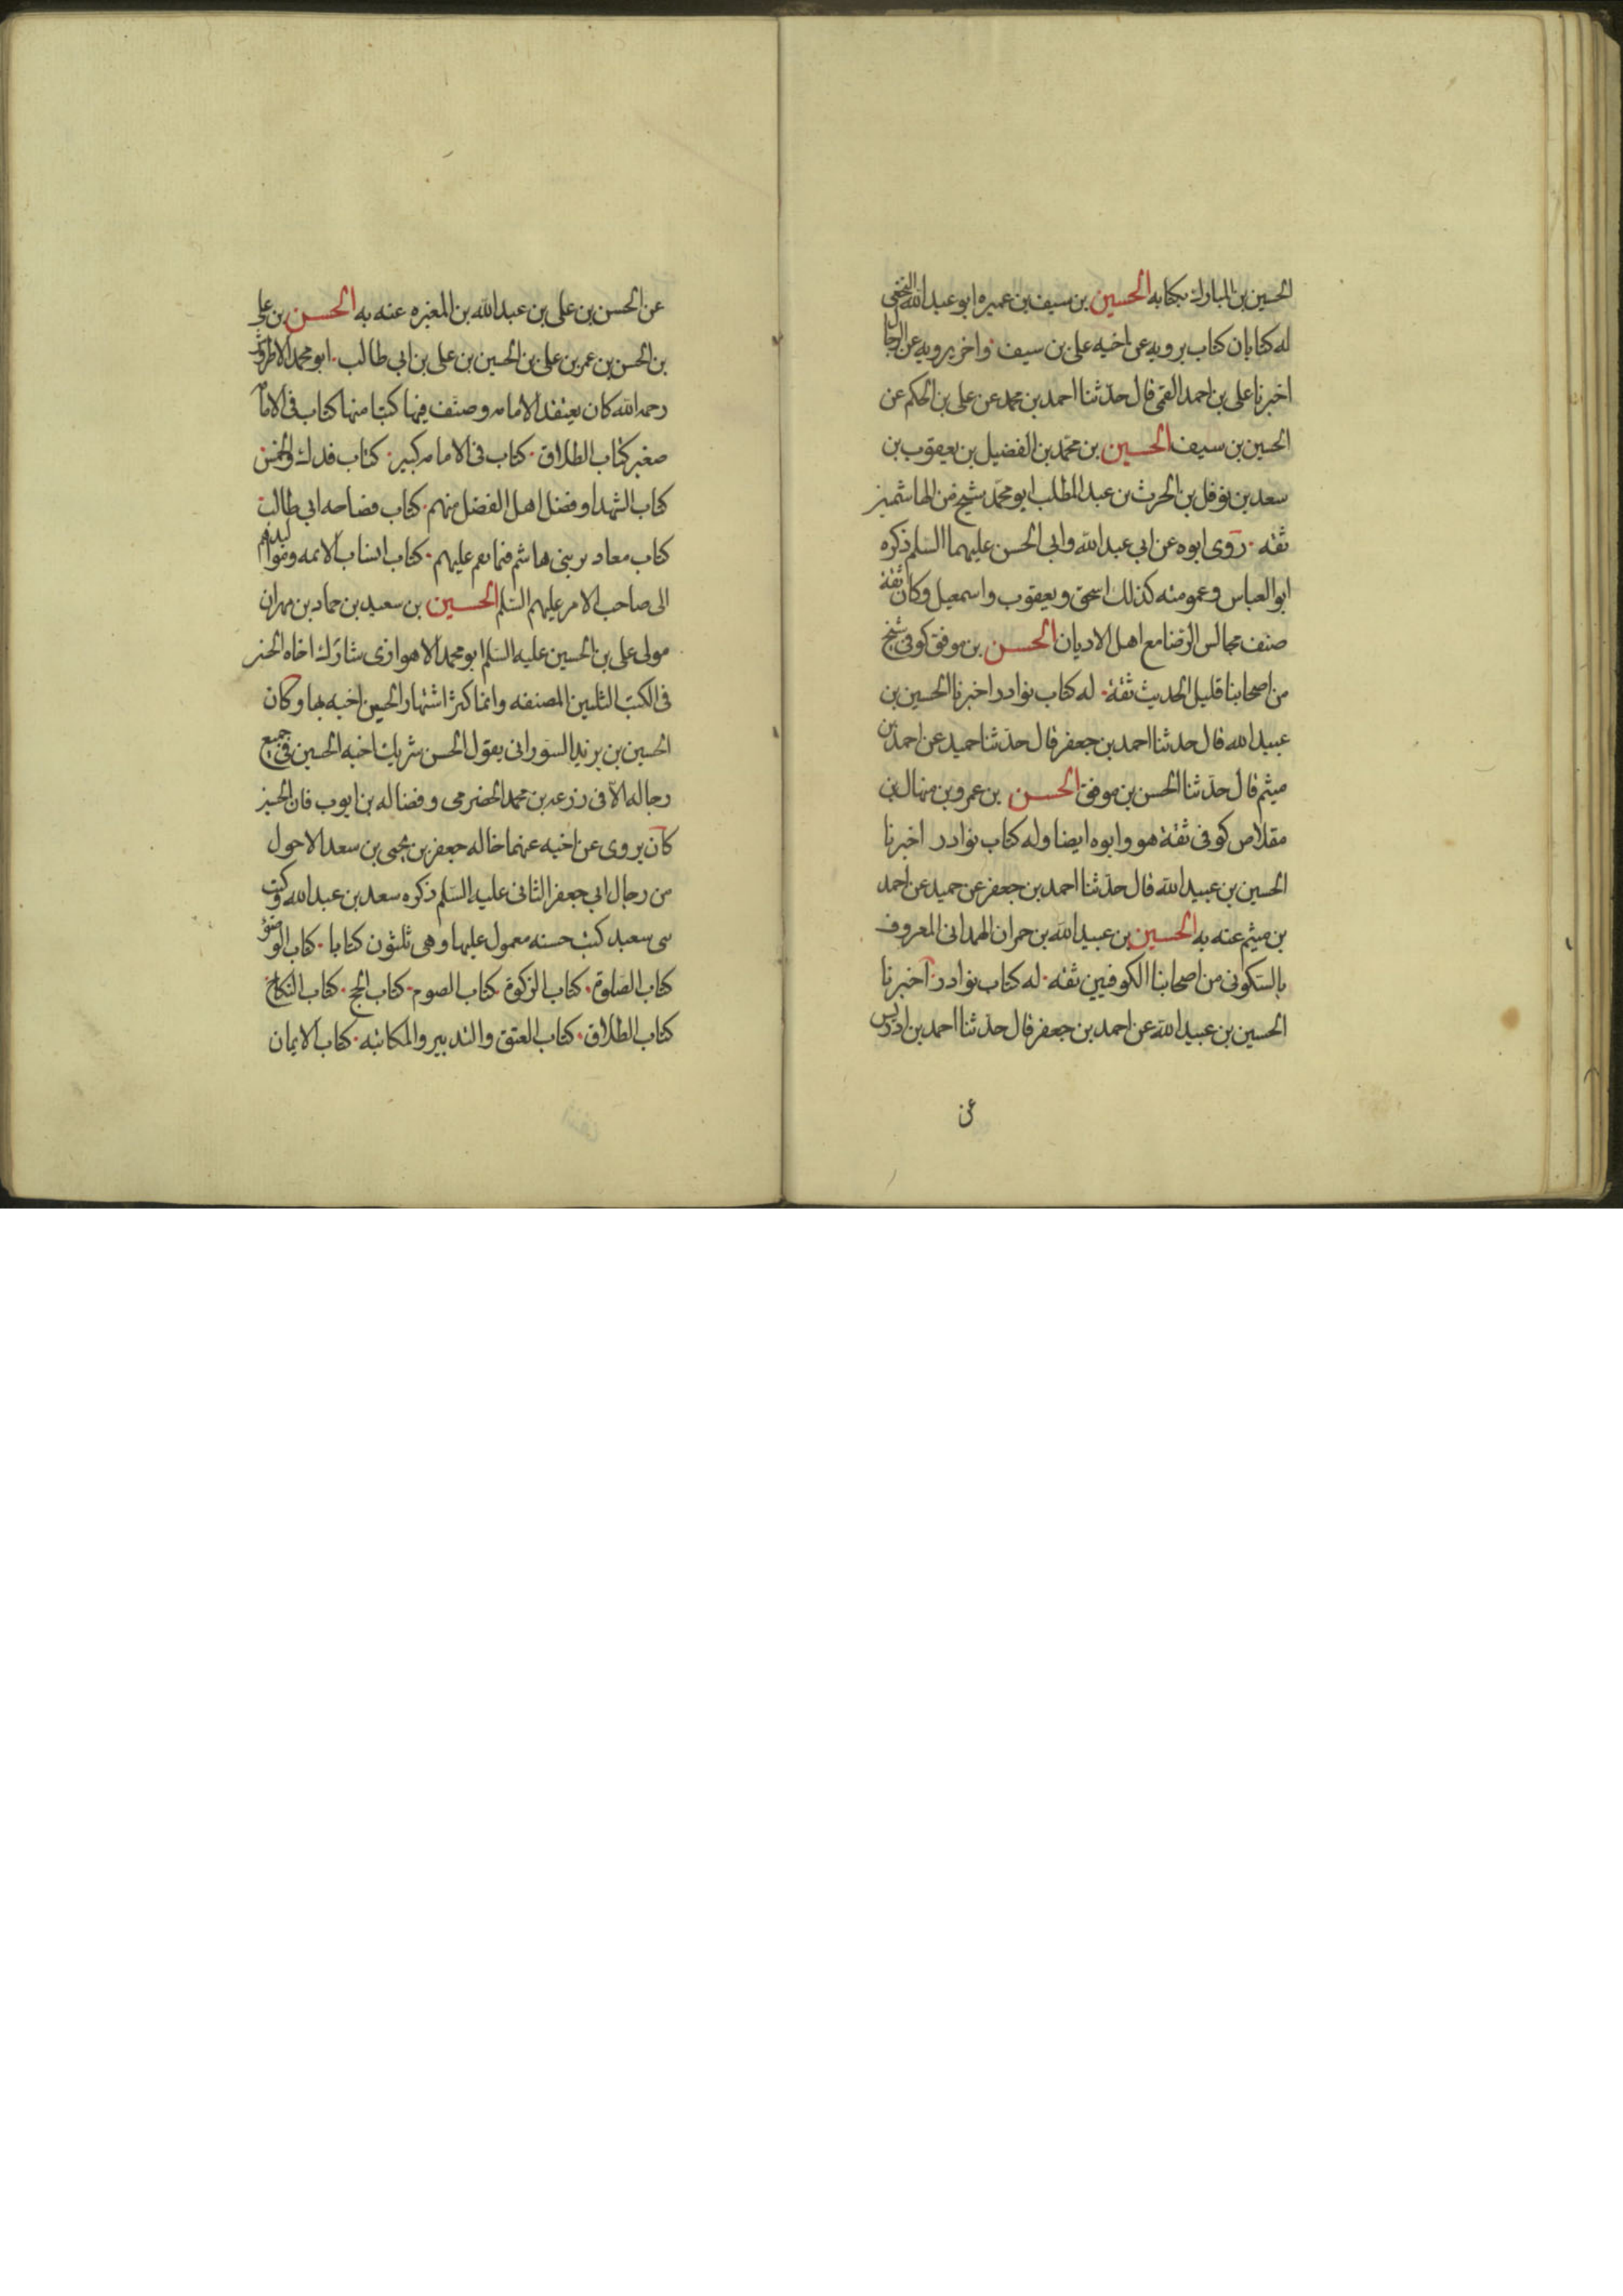 الحسين بن المبارك بكتابه الحسين بن سيف بن عميره ابو عبد الله النخعي
له كتابان كتاب يرويه عن اخيه علي بن سيف واخر يرويه عن الرجال
اخبرنا علي بن احمد القمي قال حدثنا احمد بن محمد عن علي بن الحكم عن
الحسين بن سيف الحسين بن محمد بن الفضيل بن يعقوب بن
سعد بن نوفل بن الحرث بن عبد المطلب ابو محمد شيخ من الهاشميين
ثقه روى ابوه عن ابي عبد الله وابي الحسن عليهما السلم ذكره
ابو العباس وعمومته كذلك اسحق ويعقوب واسمعيل وكان ثقة
صنف مجالس الرضا مع اهل الاديان الحسن بن موفق كوفي شيخ
من اصحابنا قليل الحديث ثقة له كتاب نوادر اخبرنا الحسين بن
عبيد الله قال حدثنا احمد بن جعفر قال حدثنا حميد عن احمد بن
ميثم قال حدثنا الحسن بن موفق الحسن بن عمرو بن منهال بن
مقلاص كوفي ثقة هو وابوه ايضا وله كتاب نوادر اخبرنا
الحسين بن عبيد الله قال حدثنا احمد بن جعفر عن حميد عن احمد
بن ميثم عنه به الحسين بن عبيد الله بن حمران الهمداني المعروف
بالسكوني من اصحابنا الكوفيين ثقه له كتاب نوادر اخبرنا
الحسين بن عبيد الله عن احمد بن جعفر قال حدثنا احمد بن ادريس
عن
عن الحسن بن علي بن عبد الله بن المغيره عنه به الحسن بن علي
بن الحسن بن عمر بن علي بن الحسين بن علي بن ابي طالب ابو محمد الاطروش
رحمه الله كان يعتقد الامامه وصنف فيها كتبا منها كتاب في الامامه
صغير كتاب الطلاق كتاب في الامامه كبير كتاب فدك والخمس
كتاب الشهدا وفضل اهل الفضل منهم كتاب فصاحه ابي طالب
كتاب معاذير بني هاشم فيما نقم عليهم كتاب انساب الائمه ومواليدهم
الى صاحب الامر عليهم السلم الحسين بن سعيد بن حماد بن مهران
مولى علي بن الحسين عليه السلم ابو محمد الاهوازي شارك اخاه الحسن
في الكتب الثلثين المصنفه وانما كثر اشتهار الحسين اخيه بها وكان
الحسين بن يزيد السوراني يقول الحسن شريك اخيه الحسين في جميع
رجاله الا في زرعه بن محمد الحضرمي وفضاله بن ايوب فان الحسين
كان يروي عن اخيه عنهما خاله جعفر بن يحيى بن سعد الاحول
من رجال ابي جعفر الثاني عليه السلم ذكره سعد بن عبد الله وكتب
بني سعيد كتب حسنه معمول عليها وهي ثلثون كتابا كتاب الوضوء
كتاب الصلوة كتاب الزكوة كتاب الصوم كتاب الحج كتاب النكاح
كتاب الطلاق كتاب العتق والتدبير والمكاتبه كتاب الايمان